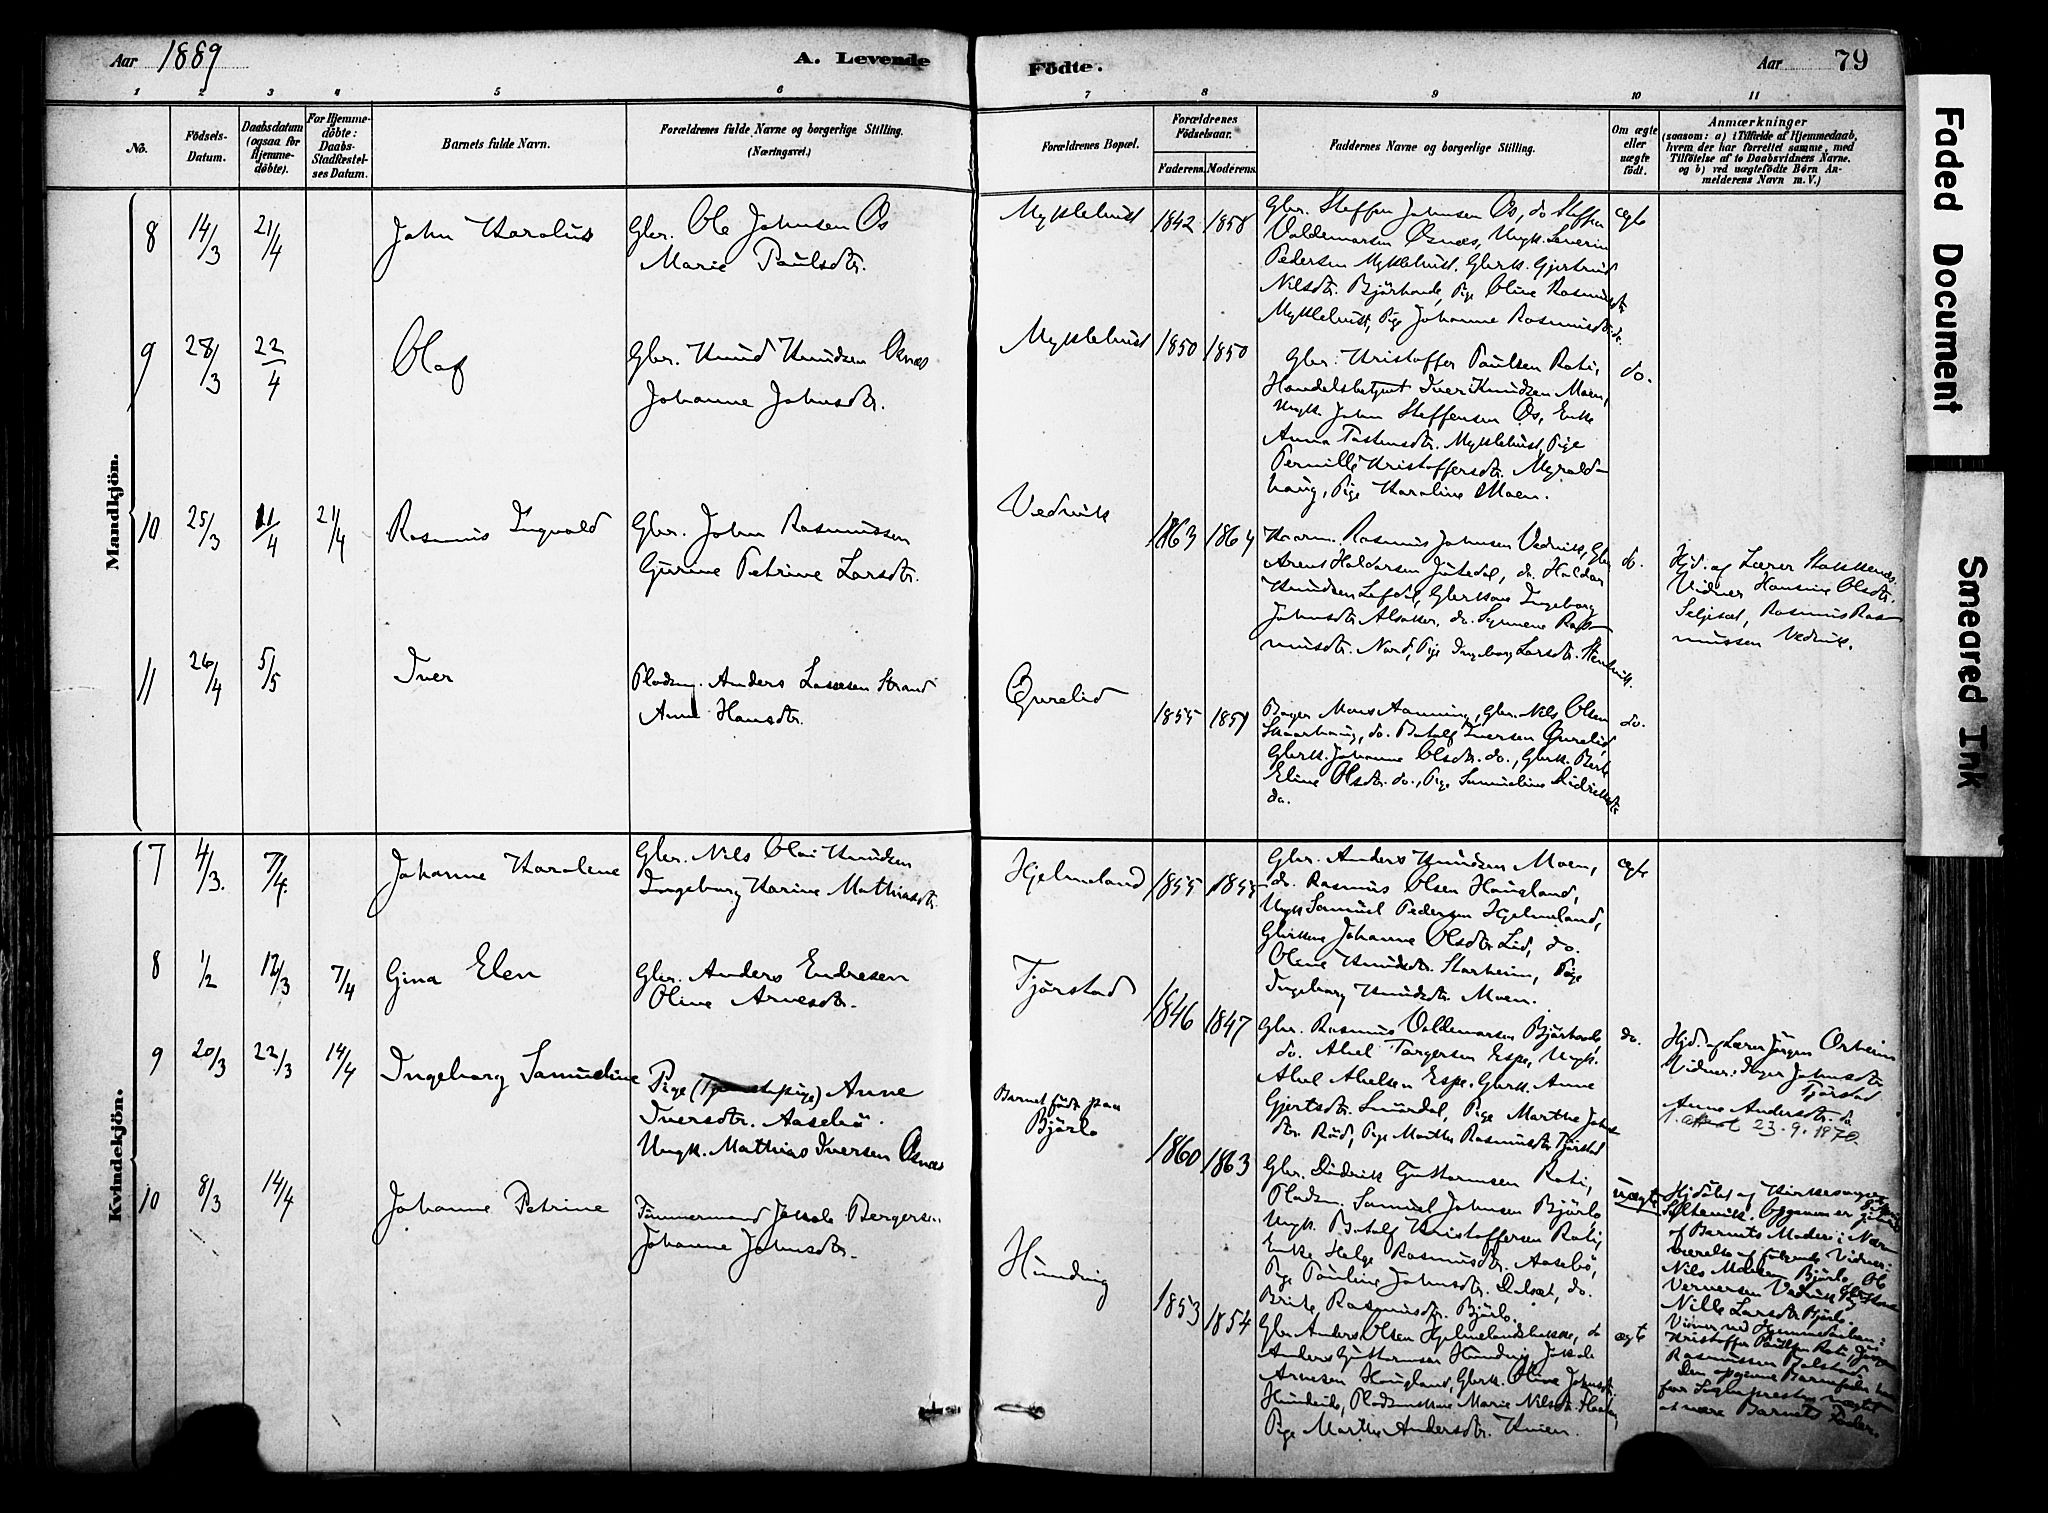 Aar 1889
A. Levende
Födte.
Aar
79
1 2 3 4 5 6 7 8 9 10 11
No.
Födsels-
Datum.
Daabsdatum
(ogsaa for
Hjemme-
döbte).
For Hjemme-
döbte:
Daabs-
Stadfæstel-
ses Datum.
Barnets fulde Navn.
Forældrenes fulde Navne og borgerlige Stilling.
(Næringsvei.)
Forældrenes Bopæl.
Forældrenes
Födselsaar.
Faderens. Moderens.
Faddernes Navne og borgerlige Stilling.
Om ægte
eller
uægte
födt.
Anmærkninger
(saasom: a) i Tilfælde af Hjemmedaab,
hvem der har forrettet samme, med
Tilföielse af to Daabsvidners Navne.
og b) ved uægtefödte Börn An-
melderens Navn m. V.)
Mandkjön.
8 14/3 21/4 John Karolus
Gbr. Ole Johnsen Os
Marie Paulsdtr.
Myklebust 1842 1858
Gbr. Steffen Johnsen Os, do Steffen
Valdemarsen Osnæs, Ungk. Severin
Pedersen Myklebust, Gbrk. Gjertrud
Nilsdtr. Björhovde, Pige Oline Rasmusdtr
Myklebust, Pige Johanne Rasmusdtr. do.
ægte
9 28/3 22/4 Olaf
Gbr. Knud Knudsen Osnæs
Johanne Johnsdtr.
Myklebust 1850 1850
Gbr. Kristoffer Paulsen Roti,
Handelsbetjent Iver Knudsen Moen,
Ungk. John Steffensen Os, Enke
Anna Tostensdtr. Myklebust, Pige
Pernille Kristoffersdtr. Myrold-
haug, Pige Karoline Moen.
do.
10 25/3 11/4 21/4 Rasmus Ingvald
Gbr. John Rasmussen
Gurine Petrine Larsdtr.
Vedvik 1863 1864
Kaarm. Rasmus Johnsen Vedvik, Gbr
Arent Haldorsen Jutedal, do. Haldor
Knudsen Lefdal, Gbrkone Ingeborg
Johnsdtr. Alsaker, do. Synneve Ras-
musdtr. Nord, Pige Ingeborg Larsdtr.
do.
Hjd. af Lærer Stokkenæs.
Vidner Hansine Olsdtr.
Seljeset, Rasmus Ras-
mussen Vedvik.
11 26/4 5/5 Iver
Pladsm. Anders Lassesen Strand
Anne Hansdtr.
Qurelid 1855 1859
Mons Aanning, Gbr. Nils Olsen
Skaarhaug, do. Botolf Iversen Qurelid,
Gbrk. Johanne Olsdtr. do., Gbrk. Berte
Eline Olsdtr. do., Pige Samueline Didriksdtr
do.
do.
Kvindekjön.
7 4/3. 7/4. Johanne Karolene
Gbr. Nils Olai Knudsen
Ingeborg Karine Mathiasdtr.
Hjelmeland 1855 1855
Gbr. Anders Knudsen Moen,
do. Rasmus Olsen Haugland,
Ungk Samuel Pedersen Hjelmeland,
Gbrkone Johanne Olsdtr Lid, do.
Oline Knudsdtr. Starheim, Pige
Ingeborg Knudsdtr. Moen.
ægte
8 1/2 17/3 7/4 Gina Elen
Gbr. Anders Endresen
Oline Arnesdtr.
Tjörstad 1846 1847
Gbr. Rasmus Valdemarsen Björhovde,
do. Abel Torgersen Espe, Ungk.
Abel Abelsen Espe, Gbrk. Anne
Gjertsdtr. Smördal, Pige Marthe Johns
dtr. Rud, Pige Marthe Rasmusdtr Tjörstad
do.
Hjd. af Lærer Jörgen Orheim
Vidner: Inger Johnsdtr.
Tjörstad
Anne Andersdtr. do
1. attest 23.9.1870.
9 20/3 22/3 14/4 Ingeborg Samueline
Pige Anne
Iversdtr. Aasebö.
Ungk. Mathias Iversen Osnæs
Barnet födt paa
Björlo
1860 1863
Gbr. Didrik Guttormsen Roti,
Pladsm. Samuel Johnsen Björlo
Ungk. Botolf Kristoffersen Roti,
Enke Helge Rasmusdtr. Aasebö,
Pige Pauline Johnsdtr. Dalset, do.
Brite Rasmusdtr. Björlo.
uægte
Hjdöbt af Kirkesanger
Opgaven er given
af Barnets Moder i Nær-
værelse af fölgende Vidner:
Nils Björlo, Ole
Vernersen Vedvik
Nille Larsdtr Björlo.
Vidner ved Hjemmedaaben:
Kristoffer Paulsen Roti,
Rasmussen
Den opgivne Barnefader har
for Sogneprester nægtet
at være Barnets Fader.
10 8/3 14/4 Johanne Petrine
Tömmermand Jakob Bergersen
Johanne Johnsdtr.
Hundvig
1853 1854
Gbr Anders Olsen Hjelmelandsbakke, do
Anders Guttormsen Hundvig, Jakob
Arnesen Haugland, Gbrk. Oline Johnsdtr.
Hundeide, Pladsmkone Marie Nilsdtr.
Pige Marthe Andersdtr.
ægte
Faded Document
Smeared Ink